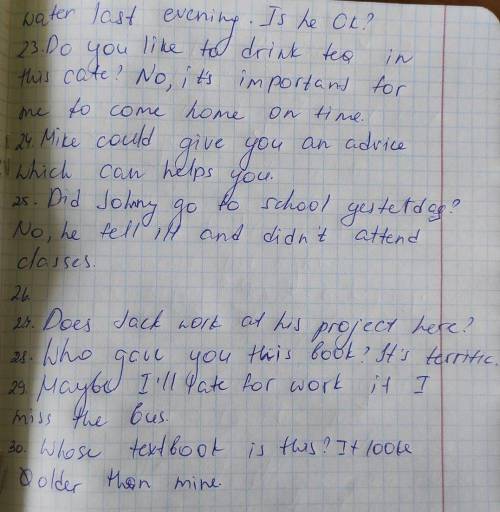 water last evening. Is he Ok?
23. Do you like to drink tea in
this cafe? No, it's important for
me to come home on time.
24. Mike could give you an advice
which can helps you.
25. Did Johny go to school yesterday?
No, he fell ill and didn't attend
classes.
26.
27. Does Jack work at his project here?
28. Who gave you this book? It's terrific.
29. Maybe I'll late for work if I
miss the bus.
30. Whose textbook is this? It looke
older than mine.